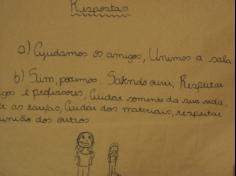 Respostas
a) Ajudamos os amigos, Unimos a sala
b) Sim, podemos. Sabendo ouvir, Respeitar
gos e professores. Cuidar somente da sua vida
as Cuidar dos materiais, respeitar
opinião dos outros.